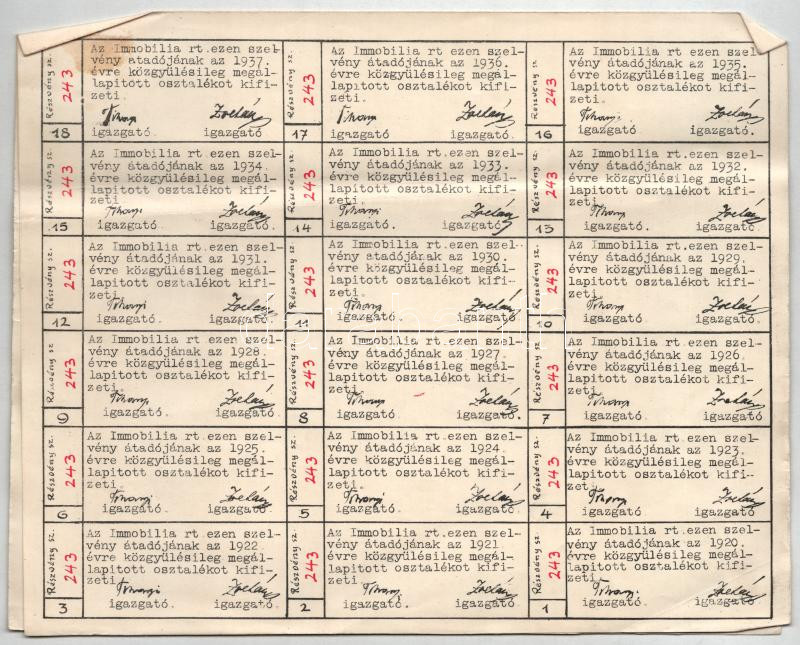 Részvény sz. 243
Az Immobilia rt.ezen szel-
vény átadójának az 1937.
évre közgyülésileg megál-
lapitott osztalékot kifi-
zeti.
18 igazgató igazgató
Részvény sz. 243
Az Immobilia rt ezen szel-
vény átadójának az 1936.
évre közgyülésileg megál-
lapitott osztalékot kifi-
zeti.
17 igazgató igazgató
Részvény sz. 243
Az Immobilia rt.ezen szel-
vény átadójának az 1935.
évre közgyülésileg megál-
lapitott osztalékot kifi-
zeti.
16 igazgató igazgató.
Részvény sz. 243
Az Immobilia rt.ezen szel-
vény átadójának az 1934
évre közgyülésileg megál-
lapitott osztalékot kifi-
zeti.
15 igazgató. igazgató.
Részvény sz. 243
Az Immobilia rt.ezen szel-
vény átadójának az 1933.
évre közgyülésileg megál-
lapitott osztalékot kifi-
zeti.
14 igazgató. igazgató.
Részvény sz. 243
Az Immobilia rt.ezen szel-
vény átadójának az 1932.
évre közgyülésileg megál-
lapitott osztalékot kifi-
zeti.
13 igazgató. igazgató.
Részvény sz. 243
Az Immobilia rt.ezen szel-
vény átadójának az 1931.
évre közgyülésileg megál-
lapitott osztalékot kifi-
zeti.
12 igazgató. igazgató.
Részvény sz. 243
Az Immobilia rt.ezen szel-
vény átadójának az 1930.
évre közgyülésileg megál-
lapitott osztalékot kifi-
zeti.
11 igazgató. igazgató.
Részvény sz. 243
Az Immobilia rt.ezen szel-
vény átadójának az 1929.
évre közgyülésileg megál-
lapitott osztalékot kifi-
zeti.
10 igazgató. igazgató.
Részvény sz. 243
Az Immobilia rt.ezen szel-
vény átadójának az 1928.
évre közgyülésileg megál-
lapitott osztalékot kifi-
zeti.
9 igazgató. igazgató.
Részvény sz. 243
Az Immobilia rt.ezen szel-
vény átadójának az 1927.
évre közgyülésileg megál-
lapitott osztalékot kifi-
zeti.
8 igazgató. igazgató.
Részvény sz. 243
Az Immobilia rt.ezen szel-
vény átadójának az 1926.
évre közgyülésileg megál-
lapitott osztalékot kifi-
zeti.
7 igazgató. igazgató
Részvény sz. 243
Az Immobilia rt.ezen szel-
vény átadójának az 1925.
évre közgyülésileg megál-
lapitott osztalékot kifi-
zeti.
6 igazgató. igazgató.
Részvény sz. 243
Az Immobilia rt.ezen szel-
vény átadójának az 1924.
évre közgyülésileg megál-
lapitott osztalékot kifi-
zeti.
5 igazgató. igazgató.
Részvény sz. 243
Az Immobilia rt.ezen szel-
vény átadójának az 1923.
évre közgyülésileg megál-
lapitott osztalékot kifi-
zeti.
4 igazgató. igazgató.
Részvény sz. 243
Az Immobilia rt.ezen szel-
vény átadójának az 1922.
évre közgyülésileg megál-
lapitott osztalékot kifi-
zeti.
3 igazgató. igazgató.
Részvény sz. 243
Az Immobilia rt.ezen szel-
vény átadójának az 1921.
évre közgyülésileg megál-
lapitott osztalékot kifi-
zeti.
2 igazgató. igazgató.
Részvény sz. 243
Az Immobilia rt.ezen szel-
vény átadójának az 1920.
évre közgyülésileg megál-
lapitott osztalékot kifi-
zeti.
1 igazgató. igazgató.